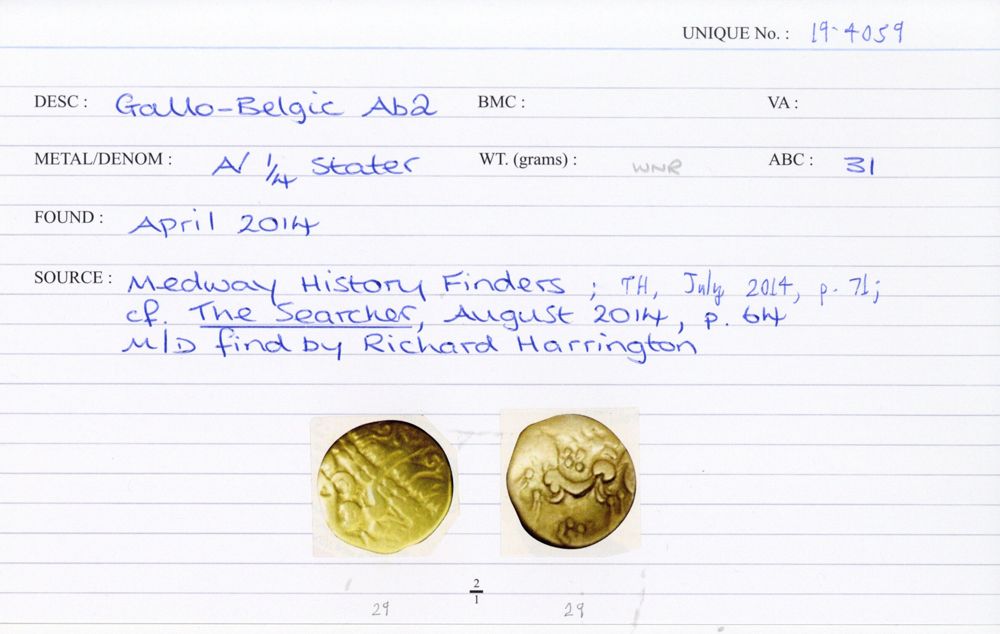 UNIQUE No. : 19-4059
DESC : Gallo-Belgic Ab2 BMC : VA :
METAL/DENOM : A/ 1/4 Stater WT. (grams) : WNR ABC : 31
FOUND : April 2014
SOURCE : Medway History Finders ; TH, July 2014, p. 71;
cf. The Searcher, August 2014, p. 64
M/D find by Richard Harrington
2
1
29 29